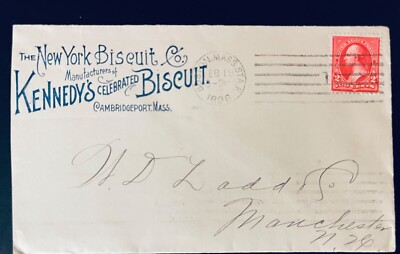 THE NEW YORK BISCUIT CO.
Manufacturers of
KENNEDY'S CELEBRATED BISCUIT.
CAMBRIDGEPORT, MASS.
MASS. STA.
FEB 19
W. D. Ladd & Co.
Manchester
N H